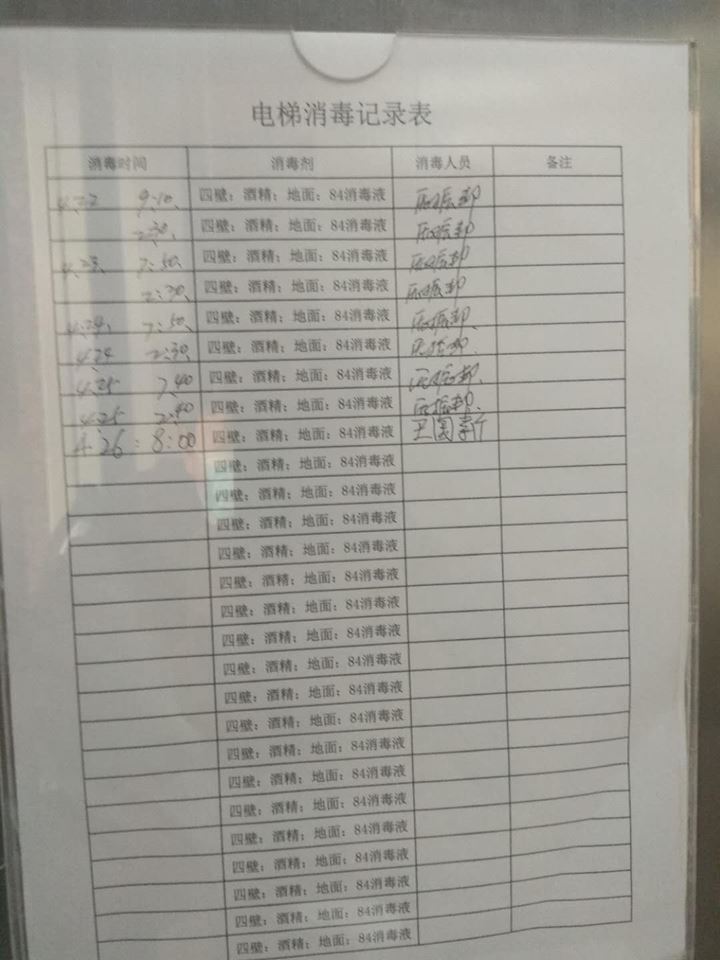 电梯消毒记录表
消毒时间 消毒剂 消毒人员 备注
4.22 9:10、 四壁：酒精；地面：84消毒液
2:30、 四壁：酒精；地面：84消毒液
4.23、 7:50、 四壁：酒精；地面：84消毒液
2:30、 四壁：酒精；地面：84消毒液
4.24、 7:50、 四壁：酒精；地面：84消毒液
4.24 2:30、 四壁：酒精；地面：84消毒液
4.25 7.40 四壁：酒精；地面：84消毒液
4.25 2:40 四壁：酒精；地面：84消毒液
4.26：8:00 四壁：酒精；地面：84消毒液
四壁：酒精；地面：84消毒液
四壁：酒精；地面：84消毒液
四壁：酒精；地面：84消毒液
四壁：酒精；地面：84消毒液
四壁：酒精；地面：84消毒液
四壁：酒精；地面：84消毒液
四壁：酒精；地面：84消毒液
四壁：酒精；地面：84消毒液
四壁：酒精；地面：84消毒液
四壁：酒精；地面：84消毒液
四壁：酒精；地面：84消毒液
四壁：酒精；地面：84消毒液
四壁：酒精；地面：84消毒液
四壁：酒精；地面：84消毒液
四壁：酒精；地面：84消毒液
四壁：酒精；地面：84消毒液
四壁：酒精；地面：84消毒液
四壁：酒精；地面：84消毒液